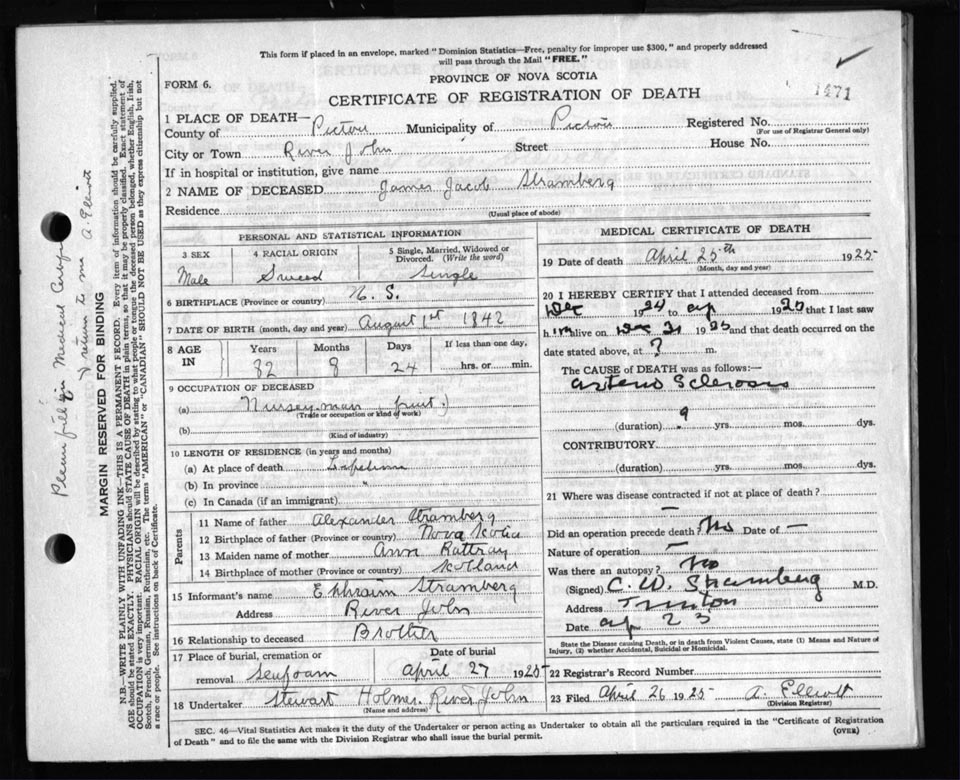 This form if placed in an envelope, marked "Dominion Statistics—Free, penalty for improper use $300," and properly addressed
will pass through the Mail "FREE."
PROVINCE OF NOVA SCOTIA
FORM 6.
CERTIFICATE OF REGISTRATION OF DEATH
1471
1 PLACE OF DEATH—
County of Pictou Municipality of Pictou Registered No.
(For use of Registrar General only)
City or Town River John Street House No.
If in hospital or institution, give name
2 NAME OF DECEASED James Jacob Stramberg
Residence
(Usual place of abode)
PERSONAL AND STATISTICAL INFORMATION
3 SEX 4 RACIAL ORIGIN 5 Single, Married, Widowed or
Divorced. (Write the word)
Male Sweed Single
6 BIRTHPLACE (Province or country) N. S.
7 DATE OF BIRTH (month, day and year) August 1st 1842
8 AGE IN Years Months Days If less than one day,
82 8 24 hrs. or min.
9 OCCUPATION OF DECEASED
(a) Nursey man fruit)
(Trade or occupation or kind of work)
(b)
(Kind of industry)
10 LENGTH OF RESIDENCE (in years and months)
(a) At place of death Lifetime
(b) In province "
(c) In Canada (if an immigrant)
Parents
11 Name of father Alexander Stramberg
12 Birthplace of father (Province or country) Nova Scotia
13 Maiden name of mother Ann Rattray
14 Birthplace of mother (Province or country) Scotland
15 Informant's name Ephraim Stramberg
Address River John
16 Relationship to deceased Brother
17 Place of burial, cremation or Date of burial
removal Seafoam April 27 1925
18 Undertaker Stewart Holmes River John
(Name and address)
MEDICAL CERTIFICATE OF DEATH
19 Date of death April 25th 1925
(Month, day and year)
20 I HEREBY CERTIFY that I attended deceased from
Dec 1924 to ap 1925 that I last saw
him alive on Dec 31 1925 and that death occurred on the
date stated above, at ? m.
The CAUSE of DEATH was as follows:
Arterio Sclerosis
?
(duration) yrs. mos. dys.
CONTRIBUTORY.
(duration) yrs. mos. dys.
21 Where was disease contracted if not at place of death?
—
Did an operation precede death? No Date of —
Nature of operation —
Was there an autopsy? No
(Signed) C. W. Stramberg M.D.
Address Trenton
Date ap 25
State the Disease causing Death, or in death from Violent Causes, state (1) Means and Nature of
Injury, (2) whether Accidental, Suicidal or Homicidal.
22 Registrar's Record Number
23 Filed April 26 1925 A. Elliott
(Division Registrar)
SEC. 46—Vital Statistics Act makes it the duty of the Undertaker or person acting as Undertaker to obtain all the particulars required in the "Certificate of Registration
of Death" and to file the same with the Division Registrar who shall issue the burial permit.
(OVER)
Please fill in Medical Certif
& return to me A. Elliott
MARGIN RESERVED FOR BINDING
N.B.—WRITE PLAINLY WITH UNFADING INK—THIS IS A PERMANENT RECORD. Every item of information should be carefully supplied.
AGE should be stated EXACTLY. PHYSICIANS should STATE CAUSE OF DEATH in plain terms, so that it may be properly classified. Exact statement of
OCCUPATION is very important. RACIAL ORIGIN will be described by stating to what people or tongue the deceased person belonged, whether English, Irish,
Scotch, French, German, Russian, Ruthenian, etc. The terms "AMERICAN" or "CANADIAN" SHOULD NOT BE USED as they express citizenship but not
a race or people. See instructions on back of Certificate.